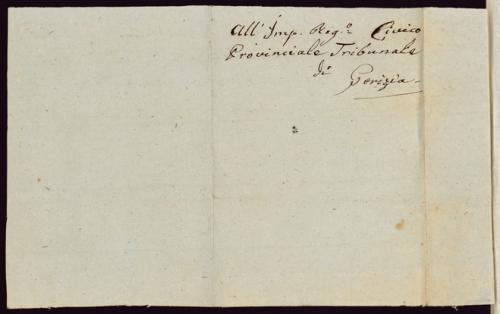 All' Imp. Reg.o Civico
Provinciale Tribunale
di
Gorizia